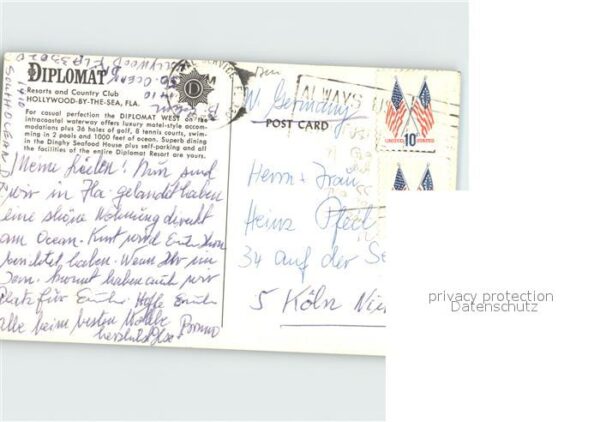 DIPLOMAT
Resorts and Country Club
HOLLYWOOD-BY-THE-SEA, FLA.
For casual perfection the DIPLOMAT WEST on the
intracoastal waterway offers luxury motel-style accom-
modations plus 36 holes of golf, 8 tennis courts, swim-
ming in 2 pools and 1000 feet of ocean. Superb dining
in the Dinghy Seafood House plus self-parking and all
the facilities of the entire Diplomat Resort are yours.
1410
SOUTH OCEAN
SO. OCEAN
D
Meine Lieben! Nun sind
wir in Fla. gelandet haben
eine schöne Wohnung direkt
am Ocean. Kurt wird Euch schon
berichtet haben. Wenn Ihr im
Jan. kommt haben auch wir
Platz für Euch. Hoffe Euch
alle beim besten Wohle
Bruno
herzlichst Ilse
ALWAYS US
W. Germany
POST CARD
10¢
Herrn + Frau
Heinz Pfeil
34 auf der Se
5 Köln Nie
privacy protection
Datenschutz